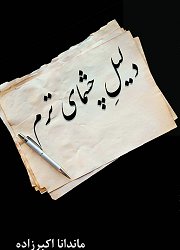 دلیلِ چشمای ترم
ماندانا اکبرزاده